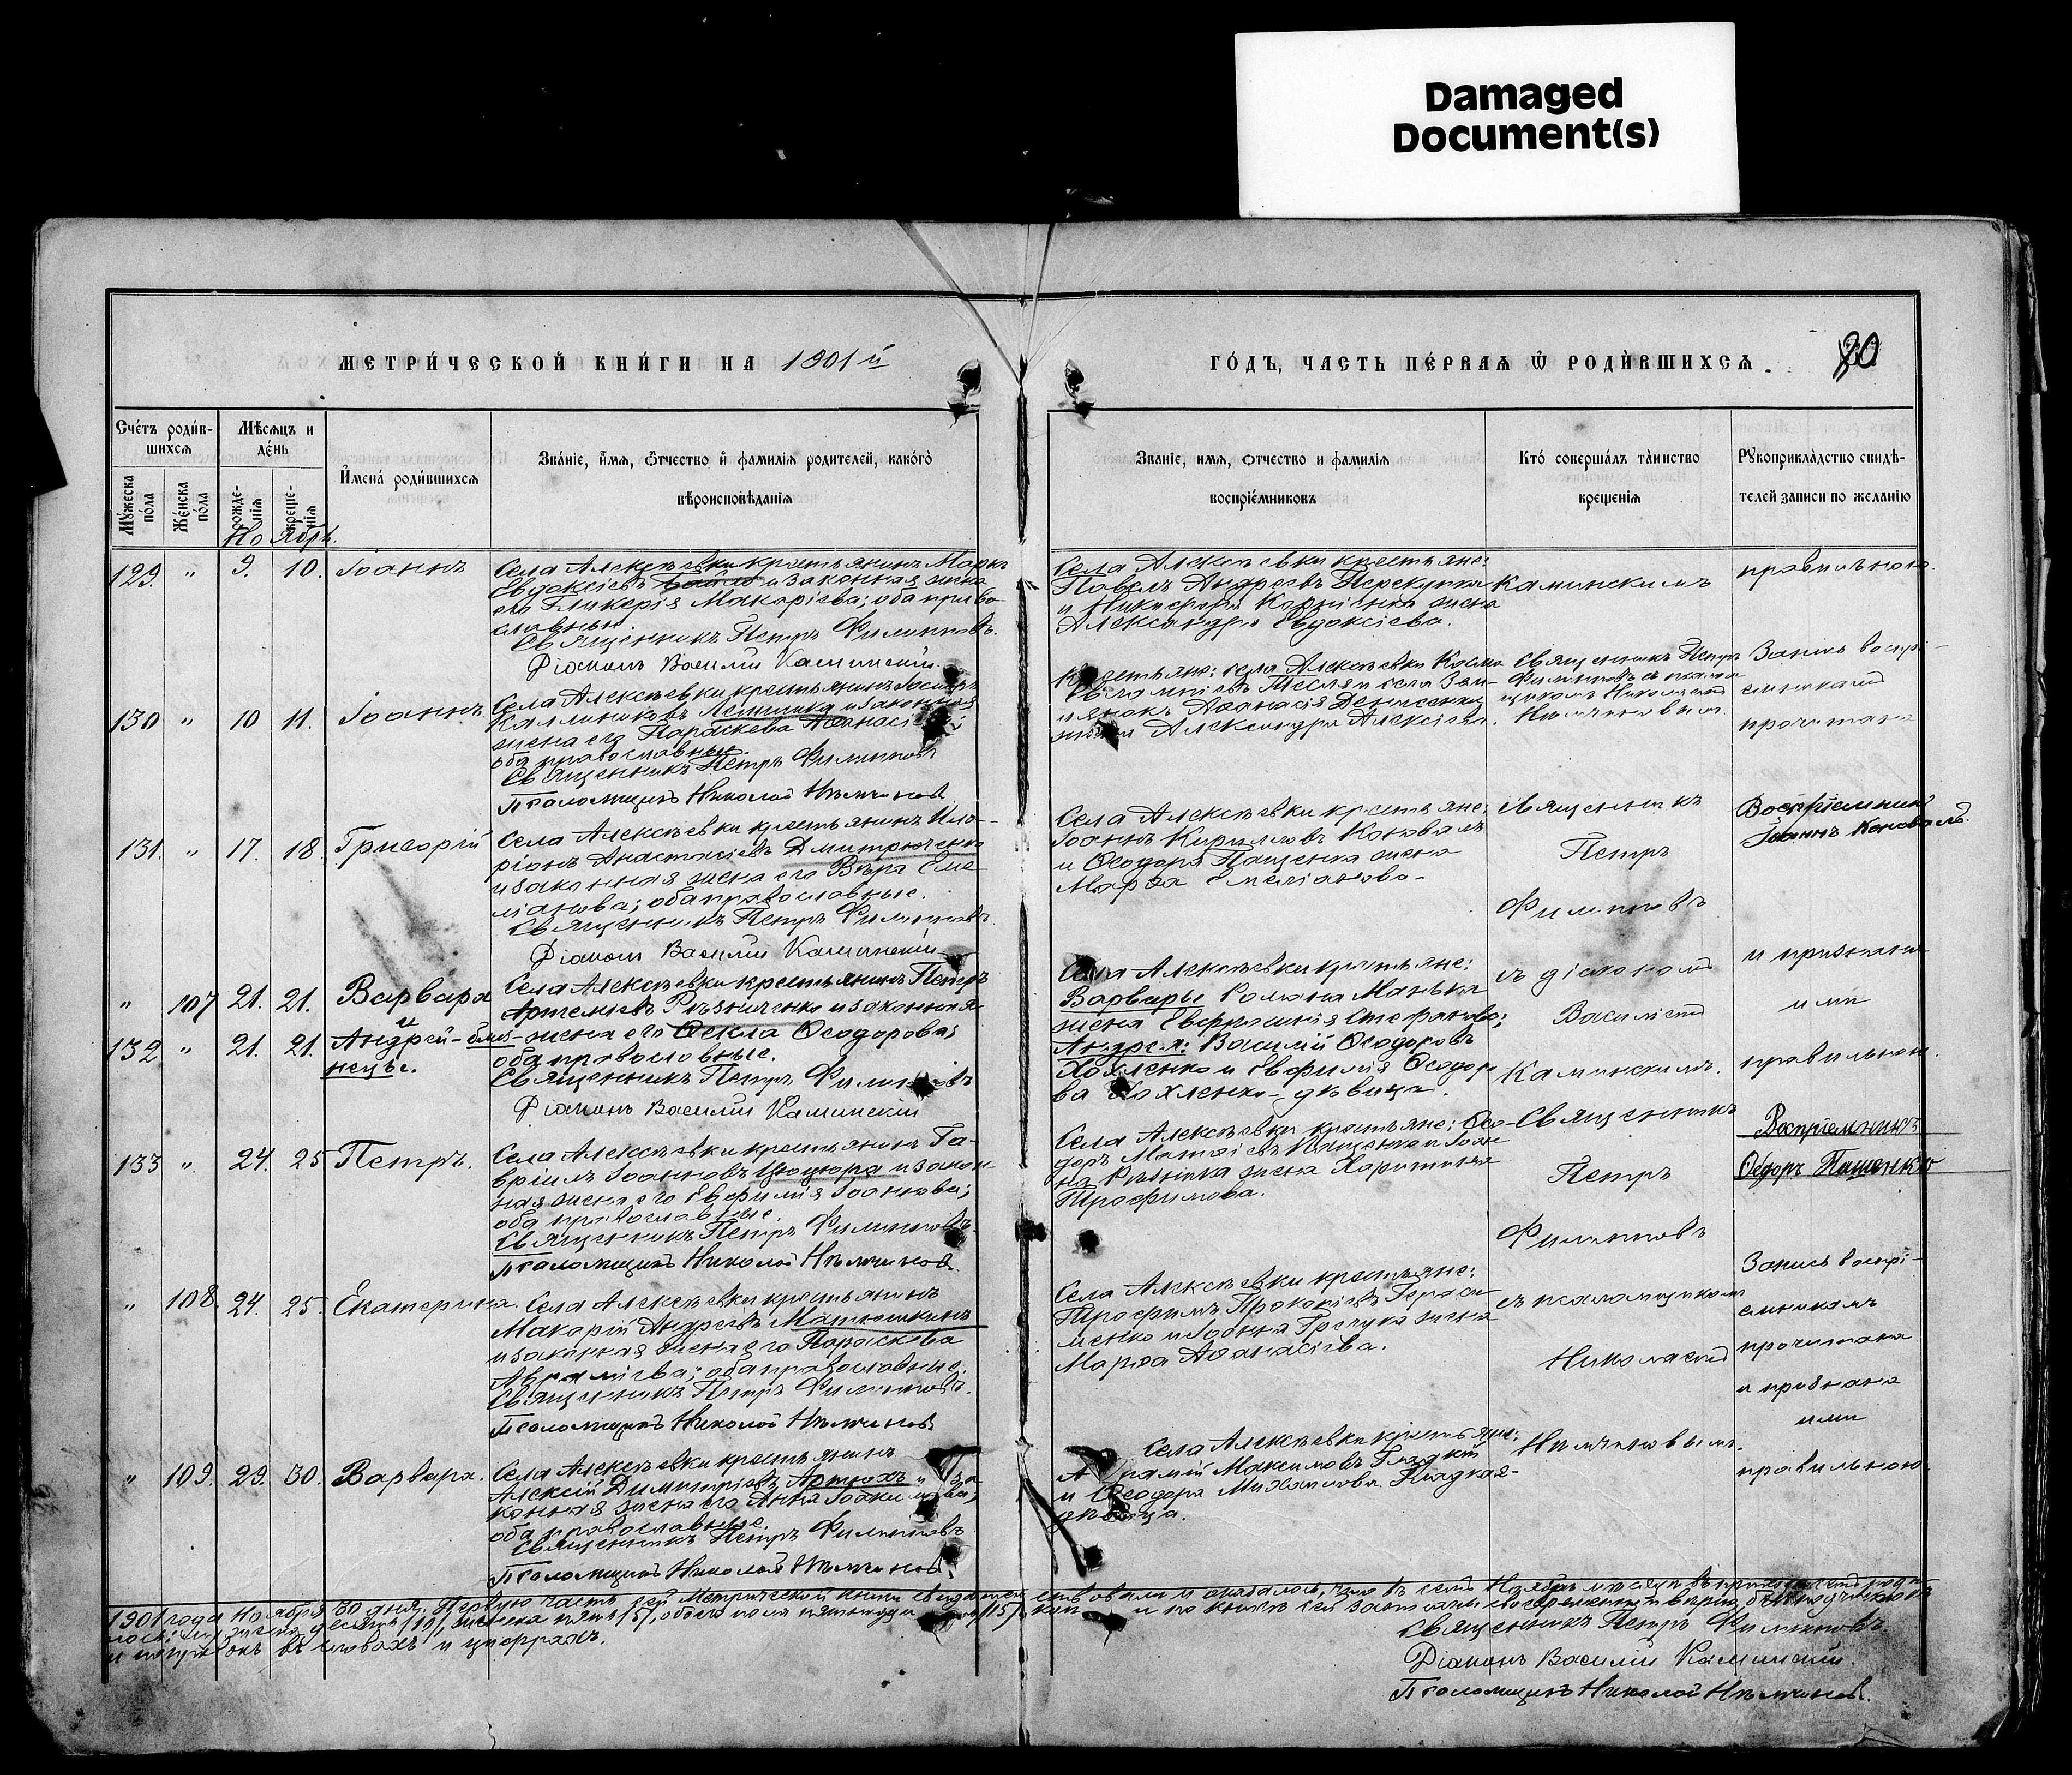 Damaged
Document(s)
МЕТРИ́ЧЕСКОЙ КНИ́ГИ НА 1901й
ГО́ДЪ, ЧАСТЬ ПЕ́РВАѦ Ѿ РОДИ́ВШИХСѦ.
80
Сче́тъ роди́в-
шихсѧ
Мѣ́сѧцъ и
де́нь
И҆мена̀ роди́вшихсѧ
Зва́нїе, и҆́мѧ, ѻ҆́тчество и҆ фамилїѧ родителей, како́гѡ
вѣроисповѣ́данїѧ
Мꙋ́жеска
по́ла
Же́нска
по́ла
рожде-
нїѧ
креще-
нїѧ
Ноябрь.
Званїе, имѧ, ѻтчество и фамилїѧ
воспрїе́мниковъ
Кто̀ соверша́лъ та́инство
крещенїѧ
Рꙋкоприкла́дство свидѣ́-
телей записи по жела́нїю
129. " 9. 10. Іоаннъ
Села Алексѣевки крестьянинъ Маркъ
Евдокіевъ и законная жена
его Гликерія Макаріева; оба право-
славные.
Священникъ Петръ Филипповъ.
Діаконъ Василій Каминскій.
Села Алексѣевки крестьяне:
Павелъ Андреевъ
и Никифора жена
Александра Евдокіева.
Каминскимъ
правильною.
130 " 10 11. Іоаннъ
Села Алексѣевки крестьянинъ
Каллиниковъ и законная
жена его Параскева
оба православные.
Священникъ Петръ Филипповъ
Псаломщикъ Николай Нѣмчиновъ.
Крестьяне: села Алексѣевки Косма
и села
Аѳанасія Денисенка
жена Александра Алексіева.
Священникъ Петръ
Филипповъ съ псалом-
щикомъ Николаемъ
Нѣмчиновымъ.
Запись воспрі-
емниками
прочитана
131. " 17. 18. Григорій
Села Алексѣевки крестьянинъ Ила-
ріонъ Анастасіевъ Дмитрюченко
и законная жена его Вѣра Еме-
ліанова; оба православные.
Священникъ Петръ Филипповъ.
Діаконъ Василій Каминскій
Села Алексѣевки крестьяне:
Іоаннъ Кирилловъ Коновалъ
и Ѳеодора Пащенка жена
Марѳа Емеліанова-
Священникъ
Петръ
Филипповъ
Воспріемники
Іоаннъ Коновалъ.
" 107 21. 21. Варвара
и
132 " 21. 21. Андрей - близ-
нецы.
Села Алексѣевки крестьянинъ Петръ
Артемьевъ Рѣзниченко и законная
жена его Ѳекла Ѳеодорова;
оба православные.
Священникъ Петръ Филипповъ
Діаконъ Василій Каминскій
Села Алексѣевки крестьяне:
Варвары: Романа Манька
жена Евфросинія Стефанова;
Андрея: Василій Ѳеодоровъ
Хохленко и Евфимія Ѳеодоро-
ва Хохленко - дѣвица.
съ діакономъ
Василіемъ
Каминскимъ.
и признана
ими
правильною.
133 " 24. 25 Петръ.
Села Алексѣевки крестьянинъ Га-
вріилъ Іоанновъ Цюцюра и закон-
ная жена его Евфимія Іоаннова;
оба православные.
Священникъ Петръ Филипповъ.
Псаломщикъ Николай Нѣмчиновъ.
Села Алексѣевки крестьяне: Ѳео-
доръ Матѳіевъ Пащенко и Іоан-
на жена Харитина
Трофимова.
Священникъ
Петръ
Филипповъ
Воспріемникъ
Ѳедоръ Пащенко
" 108. 24. 25. Екатерина.
Села Алексѣевки крестьянинъ
Макарій Андреевъ Матюшкинъ
и законная жена его Параскева
Авраміева; оба православные.
Священникъ Петръ Филипповъ.
Псаломщикъ Николай Нѣмчиновъ.
Села Алексѣевки крестьяне:
Трофимъ Прокопіевъ Гераси-
менко и Іоанна жена
Марѳа Аѳанасіева.
съ псаломщикомъ
Николаемъ
Запись воспрі-
емникамъ
прочитана
и признана
ими
" 109. 29. 30. Варвара.
Села Алексѣевки крестьянинъ
Алексій Димитріевъ Артюхъ и за-
конная жена его Анна Іоакимова;
оба православные.
Священникъ Петръ Филипповъ
Псаломщикъ Николай Нѣмчиновъ.
Села Алексѣевки крестьяне:
Аврамій Максимовъ Гладкій
и Ѳеодора Михаилова Гладкая-
дѣвица.
Нѣмчиновымъ.
правильною.
1901 года Ноября 30 дня. Первую часть сей Метрической книги свидѣтельствовали и оказалось, что въ семъ Ноябрѣ мѣсяцѣ
женска пять (5), обоего пола пятнадцать (15)
въ словахъ и цифрахъ.
Священникъ Петръ Филипповъ.
Діаконъ Василій Каминскій.
Псаломщикъ Николай Нѣмчиновъ.